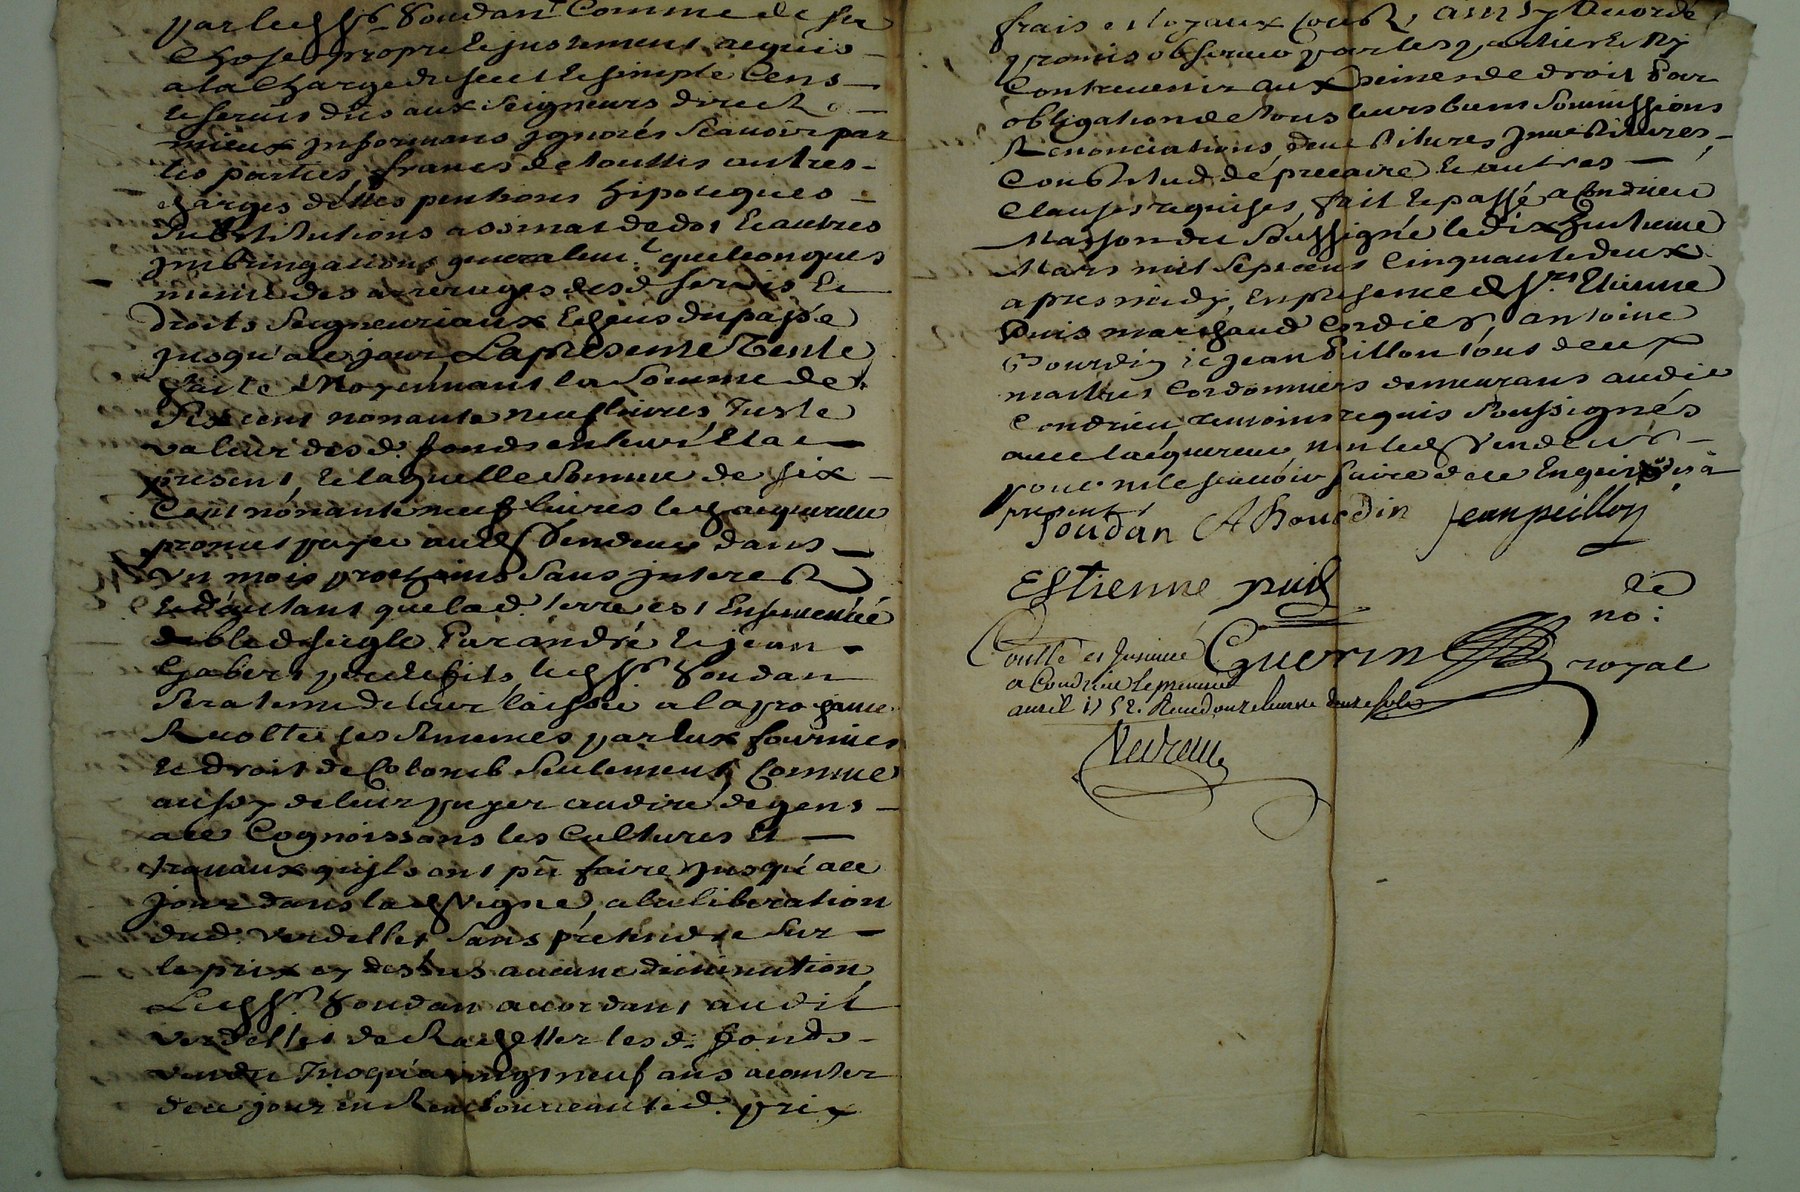 par led. Sr. Joudan Comme de sa
Chose propre et justement acquise
a la Charge du seul et simple Cens
et servis dus aux Seigneurs directs
mieux informans ignorés scavoir par
les parties, francs de touttes autres
charges dettes pentions hipoteques
substitutions assinat de dot et autres
imbringations generalemt. quelconques
meme des arrerages desd. servis et
droits Seigneuriaux Echeus du passé
jusqu'a ce jour La presente Vente
faite Moyennant la Somme de
Six cent nonante neuf livres Juste
valeur desd. fonds en leur Etat
present, et laquelle Somme de six
Cent nonante neuf livres led. acquereur
promet payer aud. Vendeur dans
un mois prochains Sans interest
et d'autant que lad. terre est Ensemencée
de bled siegle Par andré et jean
Gabert pere et fils, led. Sr. Joudan
Sera tenu de leur laisser a la prochaine
Recolte les semences par eux fournies
et droit de Colonib Seulement, Comme
aussy de leur payer au dire de gens
a ce Cognoissans les Cultures Et
travaux qu'ils ont pû faire jusqu'a ce
jour dans lad. vigne, a la liberation
dud. Verdellet Sans pretendre Sur
le prix cy dessus aucune diminution
Led. Sr. Joudan accordant audit
Verdellet de Rachetter lesd. fonds
vendu Jusqu'a vingt neuf ans a conter
de ce jour en Remboursant led. prix
frais et loyaux Cousts, ainsy accordé
promis observer par les parties et Ny
Contrevenir aux peines de droit Par
obligation de tous leurs biens Soumissions
Renonciations deuestitures Jnuestitures
Constitud de precaire et autres
Clauses requises fait et passé a Condrieu
Maison du Soussigné le dix huitieme
Mars mil Sept cent Cinquante deux
apres midy, En presence de Sr. Etienne
Puis marchand Cordier, antoine
Bourdin et Jean Pillon tous deux
maitres Cordonniers demeurans audit
Condrieu temoins requis Soussignés
avec l'acquereur, non led. Vendeur
pour ne le scavoir faire de ce Enquis et a
present
Joudan A Bourdin Jean peillon
Estienne puis
Guerin
no: royal
Controllé et Insinué
a Condrieu le premier
avril 1752. Recu douze livres douze sols